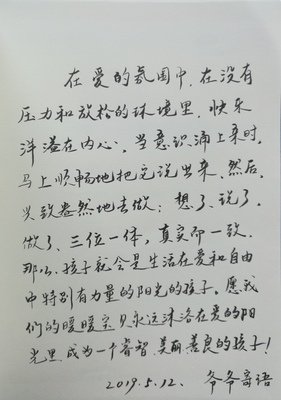 在爱的氛围中，在没有
压力和放松的环境里，快乐
洋溢在内心。当意识涌上来时，
马上顺畅地把它说出来，然后，
兴致盎然地去做；想了、说了、
做了、三位一体，真实而一致。
那么，孩子就会是生活在爱和自由
中特别有力量的阳光的孩子。愿我
们的暖暖宝贝永远沐浴在爱的阳
光里，成为一个睿智、美丽、善良的孩子！
2019.5.12. 爷爷寄语